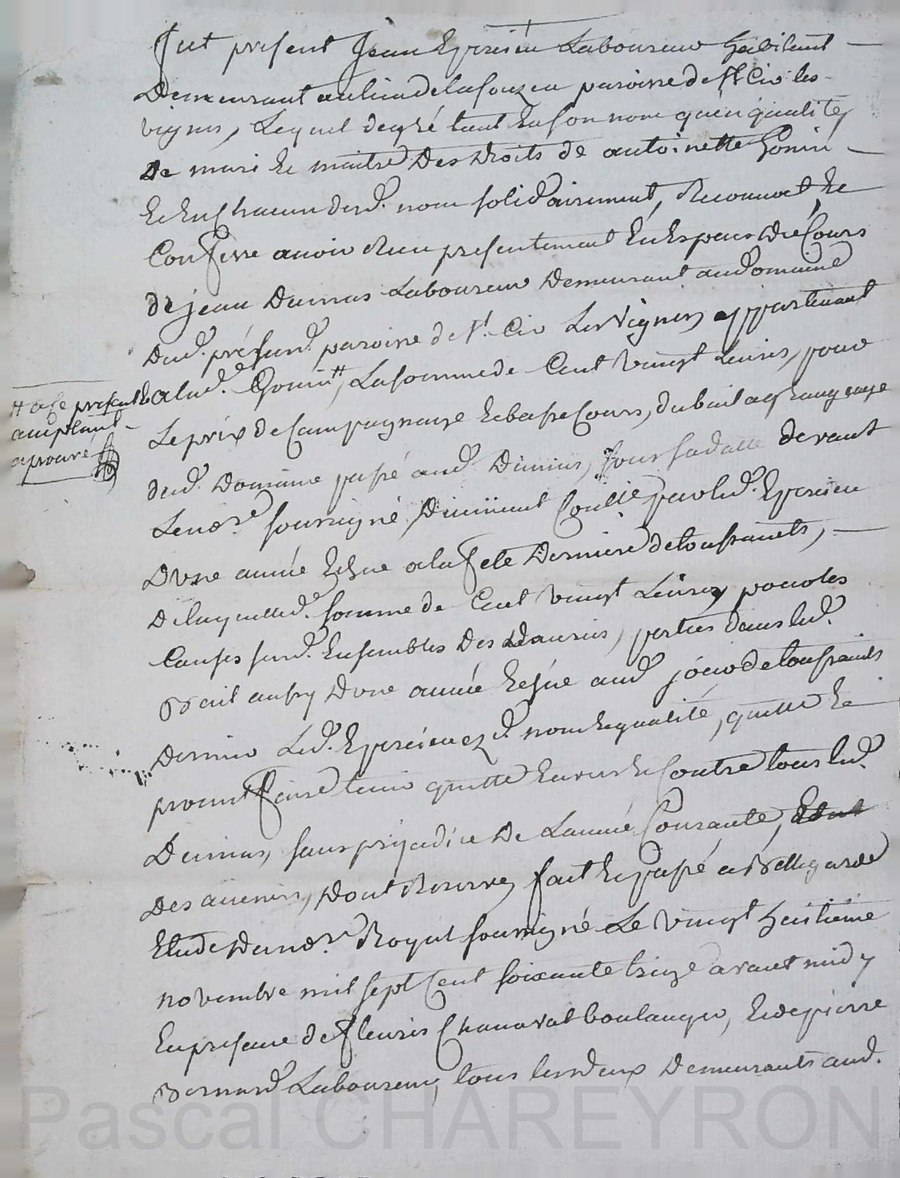 fut present Jean Epercieu Laboureur habitant
Demeurant au lieu de la fouzea paroisse de St Cir les
vignes, Lequel degré tant En son nom quen qualité
De mari Et maitre Des Droits de antoinette Gonin
Et En chacun desd. nom solidairement, Reconnoit, Et
Confesse avoir Receu presentement En Espece De Cours
de jean Dumas Laboureur Demeurant au Domaine
Dud. présund. paroisse de St Cir Les Vignes appartenant
auxd. Gonin #, La somme de Cent Vingt Livres, pour
# a ce present &
acceptant
aprouvé
Le prix de Campagnage Et basse Cours, du bail a
dud. Domaine passé aud. Dumas, sous sa datte devant
Le no.re soussigné, par lud. Epercieu
D'une année Echue a la fete Derniere de toussaints,
De laquelle d. somme de Cent vingt Livres pour les
Causes susd. Ensembles Des Danrées, portées dans lud.
Bail aussy D'une année Echue aud. jour de toussaints
Dernier Led. Epercieu ez d. nom Et qualité, quitte Et
promet faire tenir quitte Envers Et Contre tous lud.
Dumas, sans prejudice De L'année Courante, Et
Des avenir, Dont Reserve, fait Et passé a Bellegarde
Etude Du no.re Royal soussigné Le vingt huitieme
novembre mil sept Cent soixante treize avant midy
En presence de fleuris Chanavat boulanger, Et de pierre
Bernard Laboureur, tous les deux Demeurants aud.
Pascal CHAREYRON